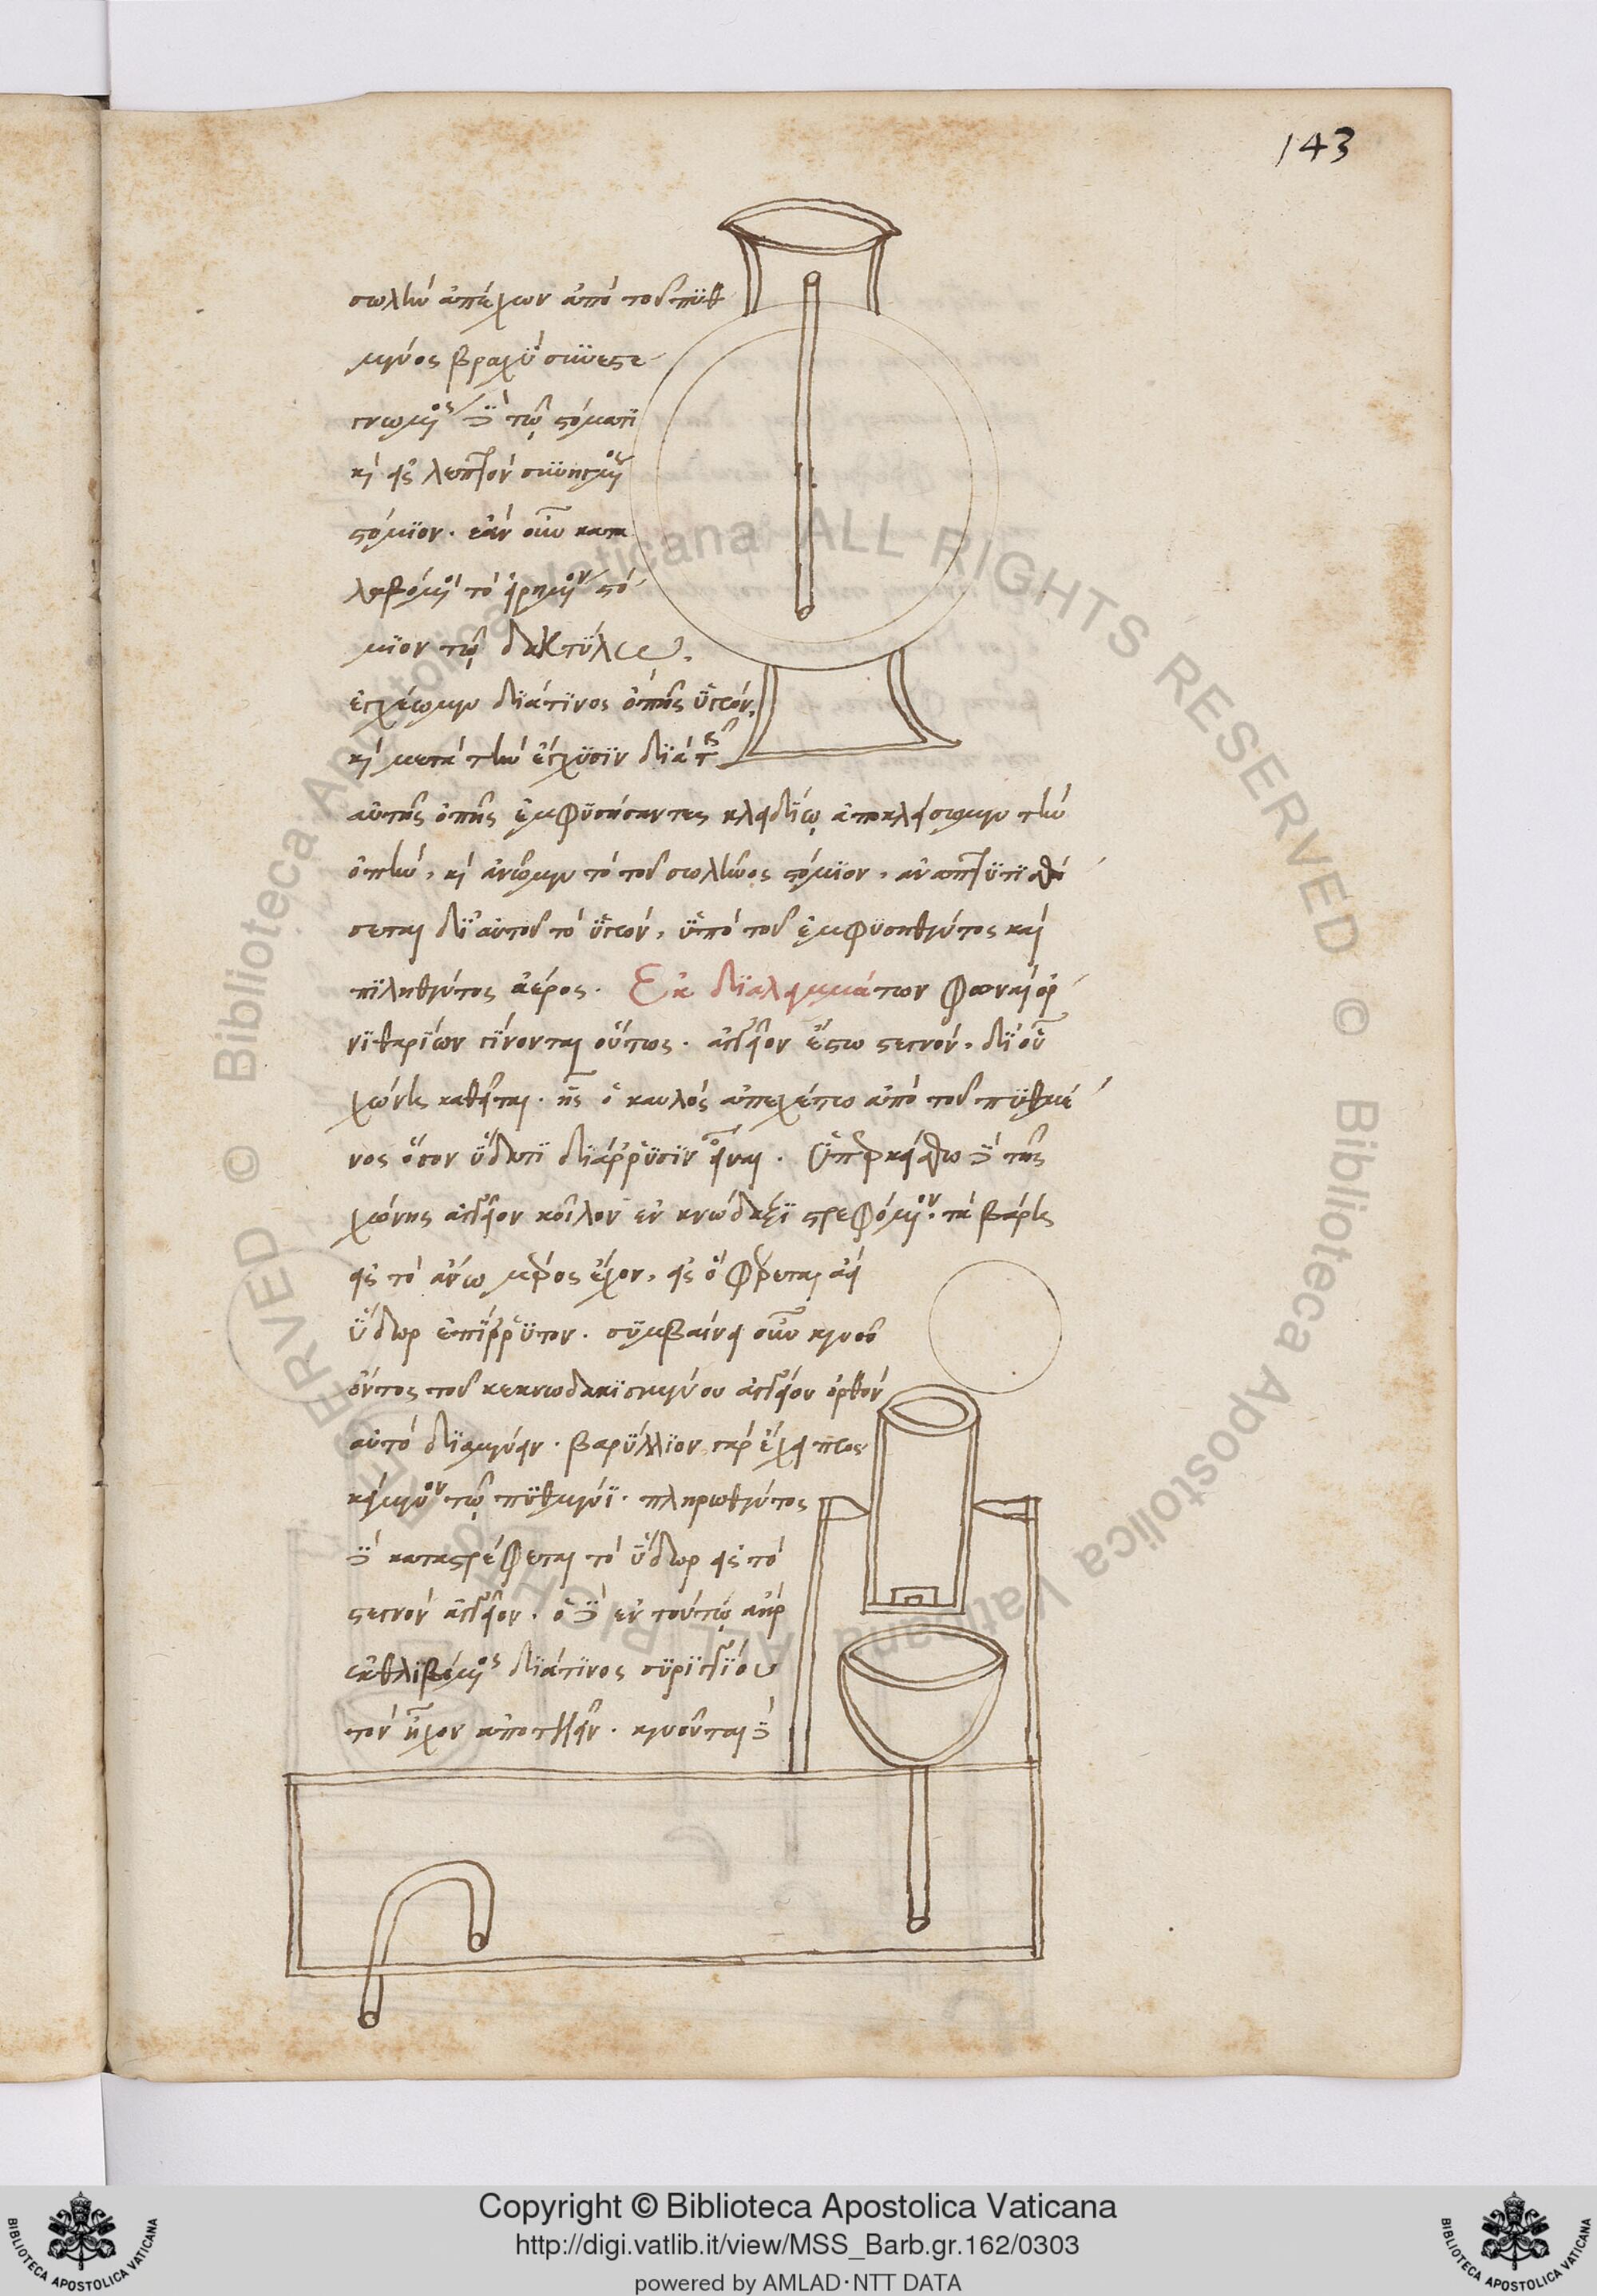 143
σωλὴν ἀπέχων ἀπὸ τοῦ πυθ
μένος βραχὺ συνεστε
γνωμένος δὲ τῷ στόματι
καὶ εἰς λεπτὸν συνηγμένος
στόμιον. ἐὰν οὖν κατα
λαβόμενοι τὸ εἰρημένον στό
μιον τῷ δακτύλῳ.
ἐγχέωμεν διά τινος ὀπῆς ὑγρόν,
καὶ μετὰ τὴν ἔγχυσιν διὰ τῆς
αὐτῆς ὀπῆς ἐμφυσήσαντες κλειδίῳ ἀποκλείσωμεν τὴν
ὀπήν, καὶ ἀνῶμεν τὸ τοῦ σωλῆνος στόμιον, ἀναπτυτισθή
σεται δι' αὐτοῦ τὸ ὑγρόν, ὑπὸ τοῦ ἐμφυσηθέντος καὶ
πιληθέντος ἀέρος. Ἐκ διαλειμμάτων φωναὶ ὀρ
νιθαρίων γίνονται οὕτως. ἀγγεῖον ἔστω στεγνόν, δι' οὗ
χώνης καθεῖται. ἧς ὁ καυλὸς ἀπεχέτω ἀπὸ τοῦ πυθμέ
νος ὅσον ὕδατι διάρρυσιν εἶναι. ὑπερκείσθω δὲ τῆς
χώνης ἀγγεῖον κοῖλον ἐν κνώδαξι στρεφόμενον. τὰ βάρη
εἰς τὸ ἄνω μέρος ἔχον, εἰς ὃ φέρεται ἀεὶ
ὕδωρ ἐπίρρυτον. συμβαίνει οὖν κενοῦ
ὄντος τοῦ κεκνωδακισμένου ἀγγείου ὀρθὸν
αὐτὸ διαμένειν. βαρύλλιον γὰρ ἔχει προσ
κείμενον τῷ πυθμένι. πληρωθέντος
δὲ καταστρέφεται τὸ ὕδωρ εἰς τὸ
στεγνὸν ἀγγεῖον. ὁ δὲ ἐν τούτῳ ἀὴρ
ἐκθλιβόμενος διά τινος συριγγίου
τὸν ἦχον ἀποτελεῖν. κενοῦται δὲ
Copyright © Biblioteca Apostolica Vaticana
http://digi.vatlib.it/view/MSS_Barb.gr.162/0303
powered by AMLAD·NTT DATA
BIBLIOTECA APOSTOLICA VATICANA
BIBLIOTECA APOSTOLICA VATICANA
© Biblioteca Apostolica Vaticana ALL RIGHTS RESERVED © Biblioteca Apostolica Vaticana ALL RIGHTS RESERVED